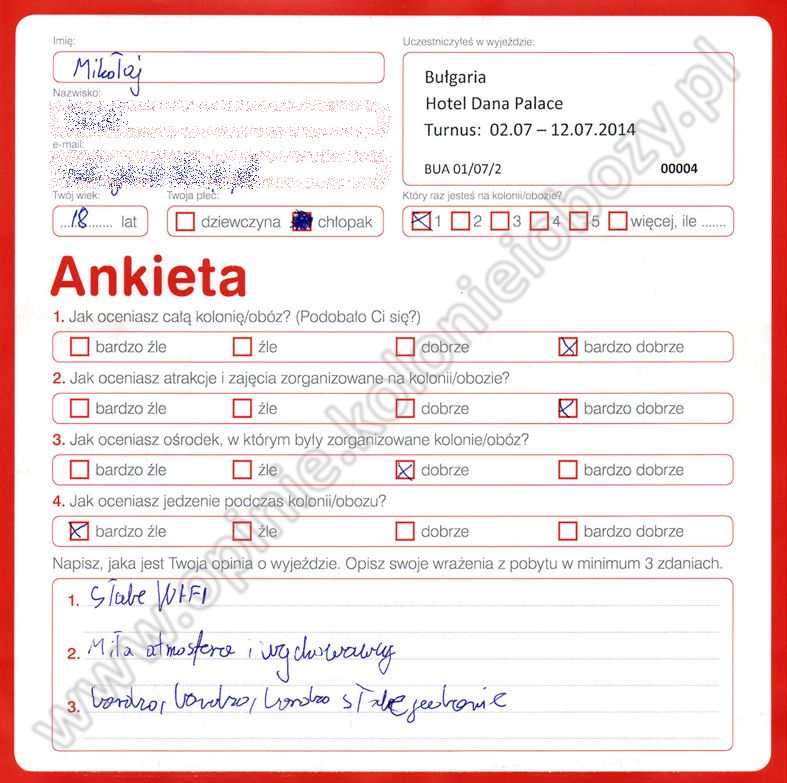 Imię:
Mikołaj
Nazwisko:
e-mail:
Twój wiek:
...18....... lat
Twoja płeć:
dziewczyna chłopak
Uczestniczyłeś w wyjeździe:
Bułgaria
Hotel Dana Palace
Turnus: 02.07 – 12.07.2014
BUA 01/07/2 00004
Który raz jesteś na kolonii/obozie?
1 2 3 4 5 więcej, ile .......
Ankieta
1. Jak oceniasz całą kolonię/obóz? (Podobało Ci się?)
bardzo źle źle dobrze bardzo dobrze
2. Jak oceniasz atrakcje i zajęcia zorganizowane na kolonii/obozie?
bardzo źle źle dobrze bardzo dobrze
3. Jak oceniasz ośrodek, w którym były zorganizowane kolonie/obóz?
bardzo źle źle dobrze bardzo dobrze
4. Jak oceniasz jedzenie podczas kolonii/obozu?
bardzo źle źle dobrze bardzo dobrze
Napisz, jaka jest Twoja opinia o wyjeździe. Opisz swoje wrażenia z pobytu w minimum 3 zdaniach.
1. Słabe WI-FI
2. Miła atmosfera i wychowawcy
3. bardzo, bardzo, bardzo słabe jedzenie
www.opinie.kolonieiobozy.pl